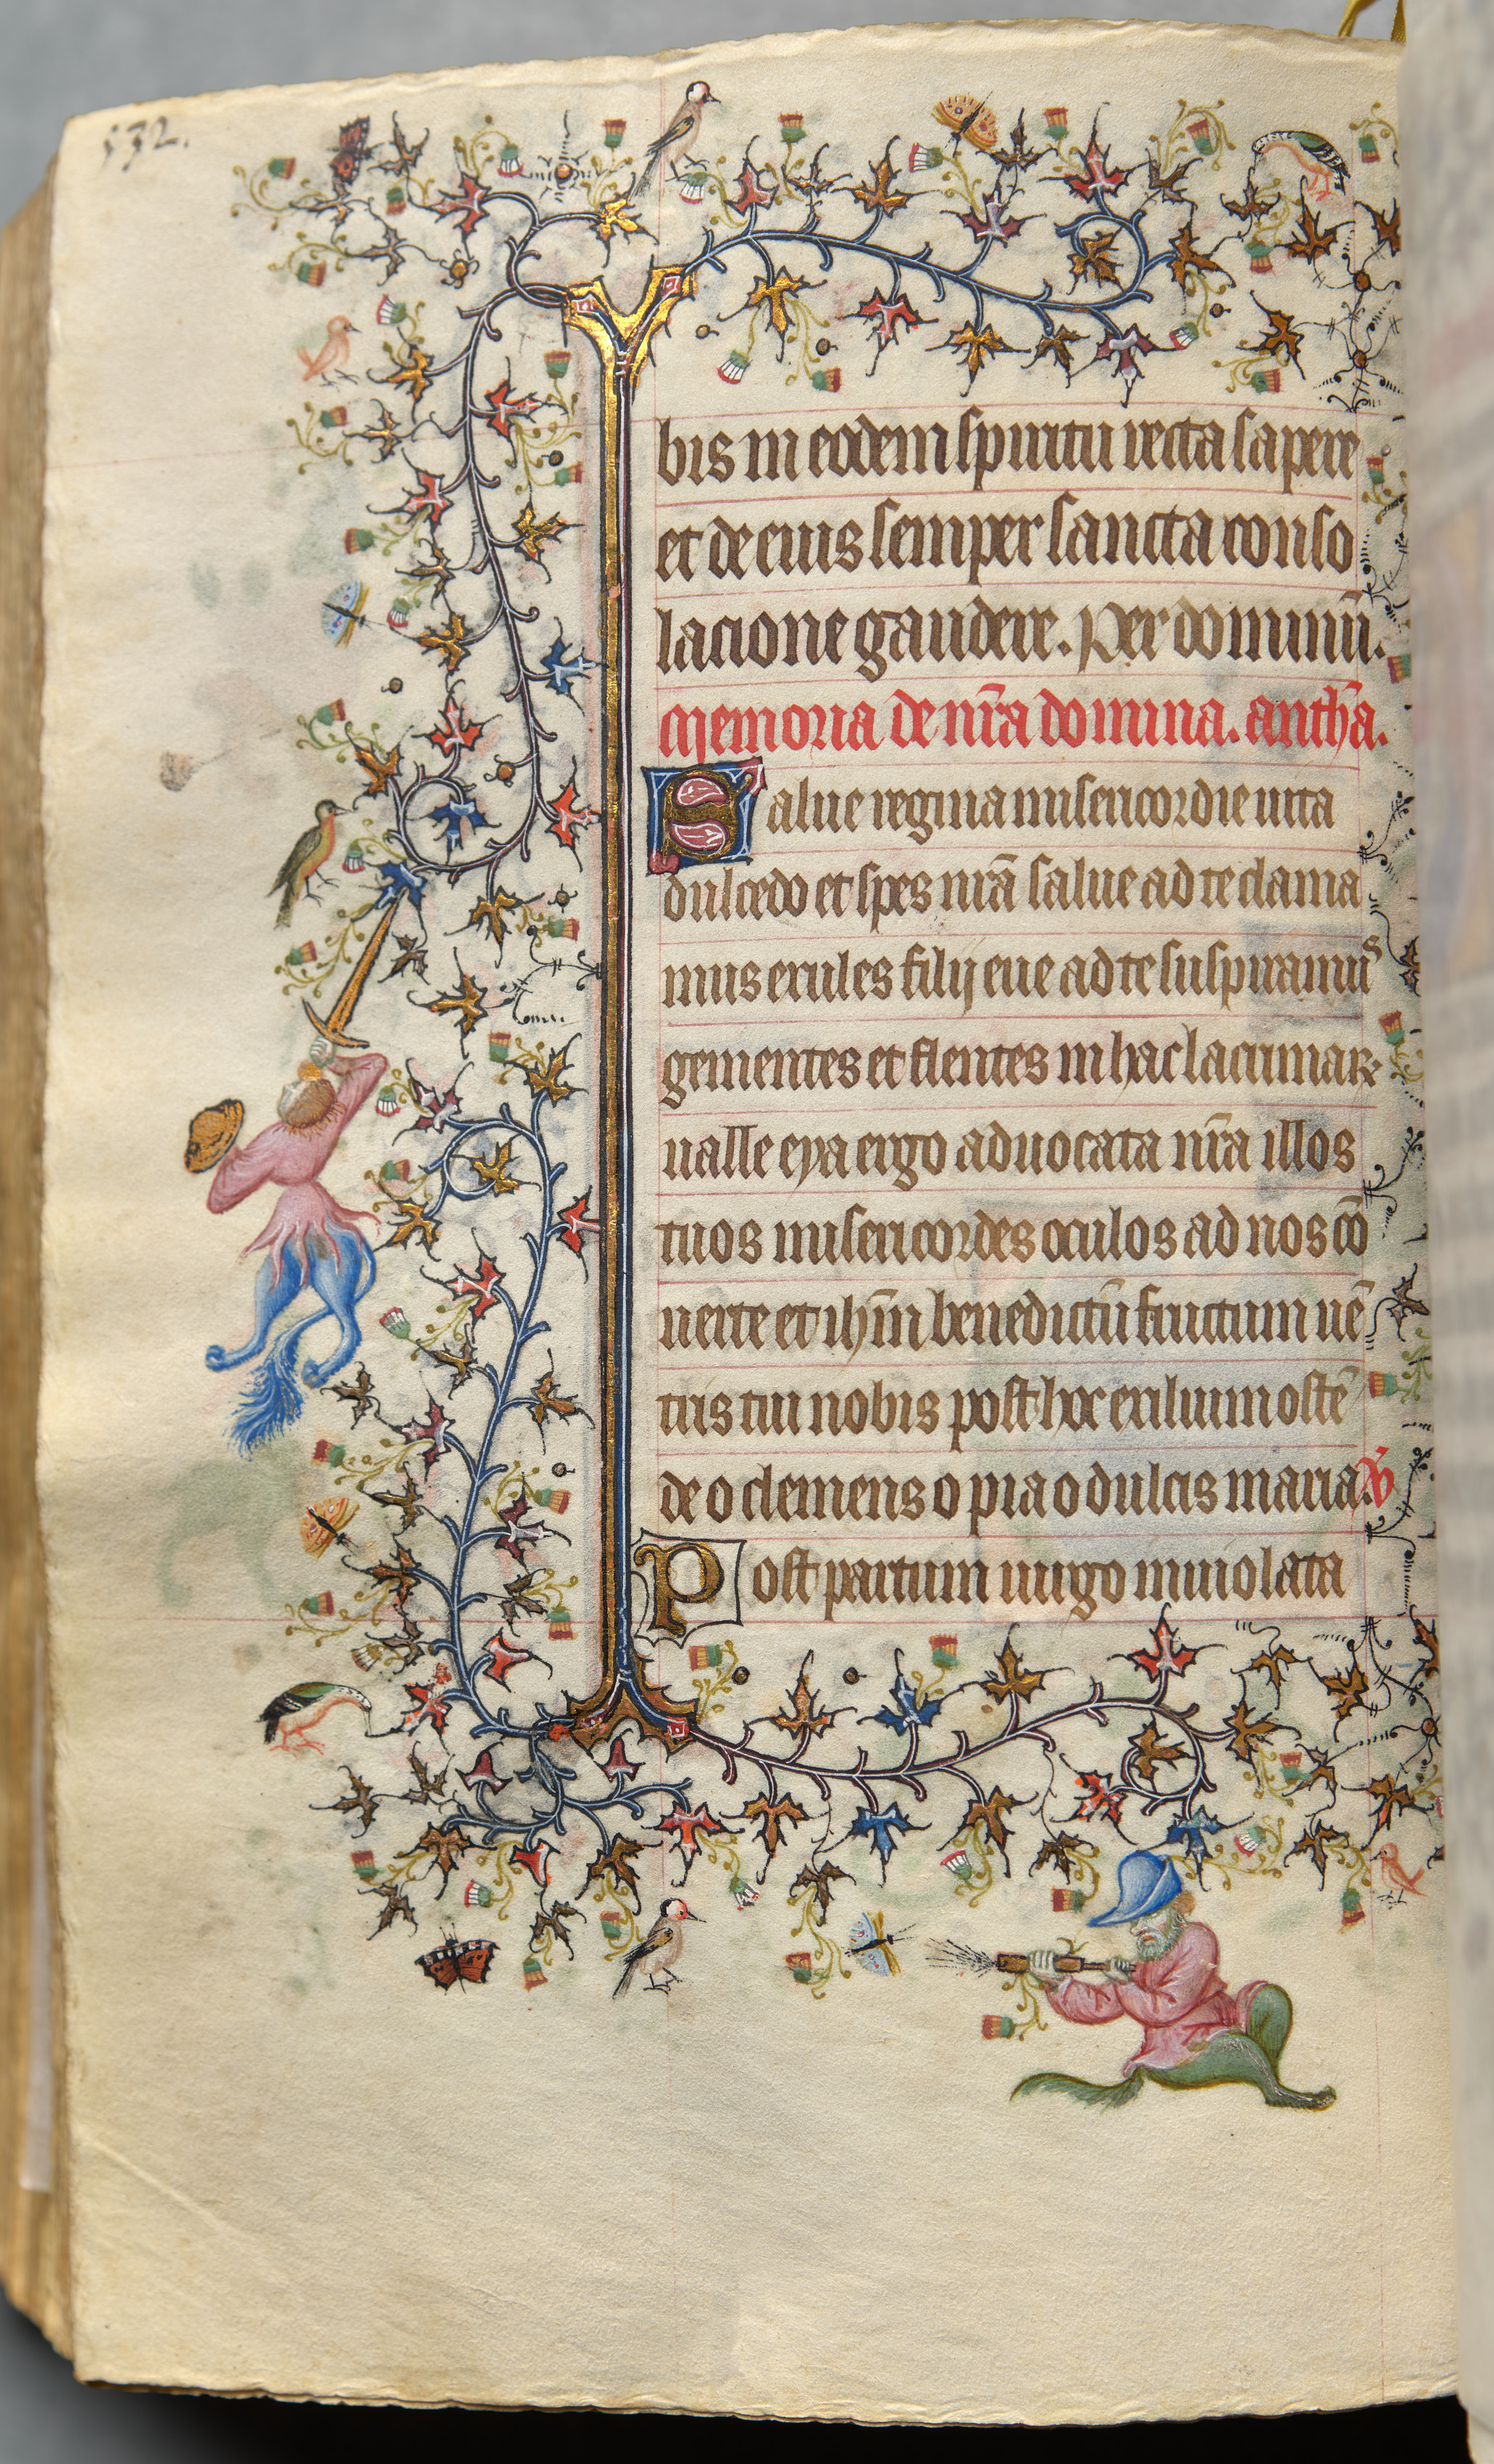 532.
bis in eodem spiritu recta sapere
et de eius semper sancta conso
lacione gaudere. Per dominū.
Memoria de nr̄a domina. anth̄a.
Salue regina misericordie uita
dulcedo et spes nr̄ā salue ad te clama
mus exules filij eue ad te suspiramuˢ
gementes et flentes in hac lacrimaꝝ
ualle eya ergo aduocata nr̄a illos
tuos misericordes oculos ad nos cō
uerte et ih̄m benedictū fructum uē
tris tui nobis post hoc exilium ostē
de o clemens o pia o dulcis maria. v̄
Post partum uirgo inuiolata